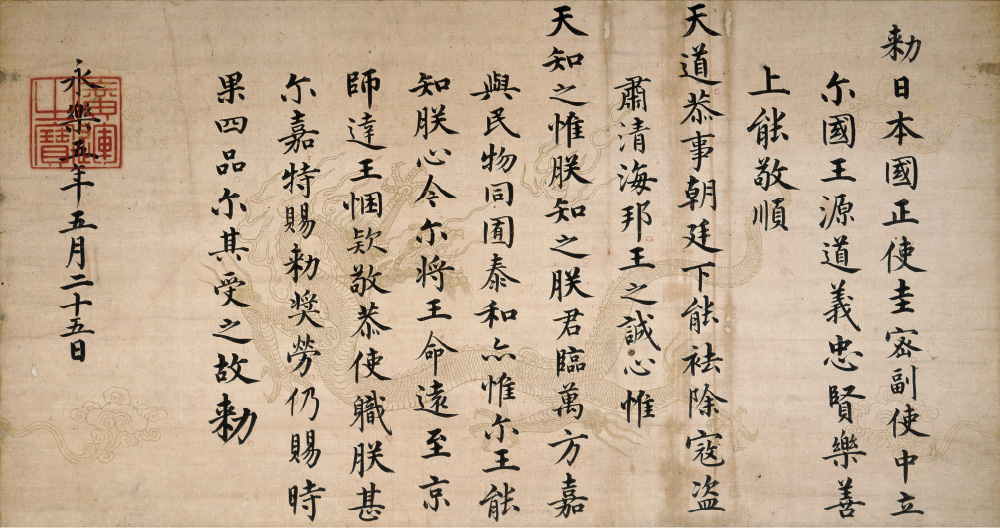 勅日本國正使圭密副使中立
尓國王源道義忠賢樂善
上能敬順
天道恭事朝廷下能祛除寇盗
肅清海邦王之誠心惟
天知之惟朕知之朕君臨萬方嘉
與民物同囿泰和亦惟尓王能
知朕心今尓将王命遠至京
師達王悃欵敬恭使職朕甚
尓嘉特賜勅奬勞仍賜時
果四品尓其受之故勅
永樂五年五月二十五日
廣運之寶